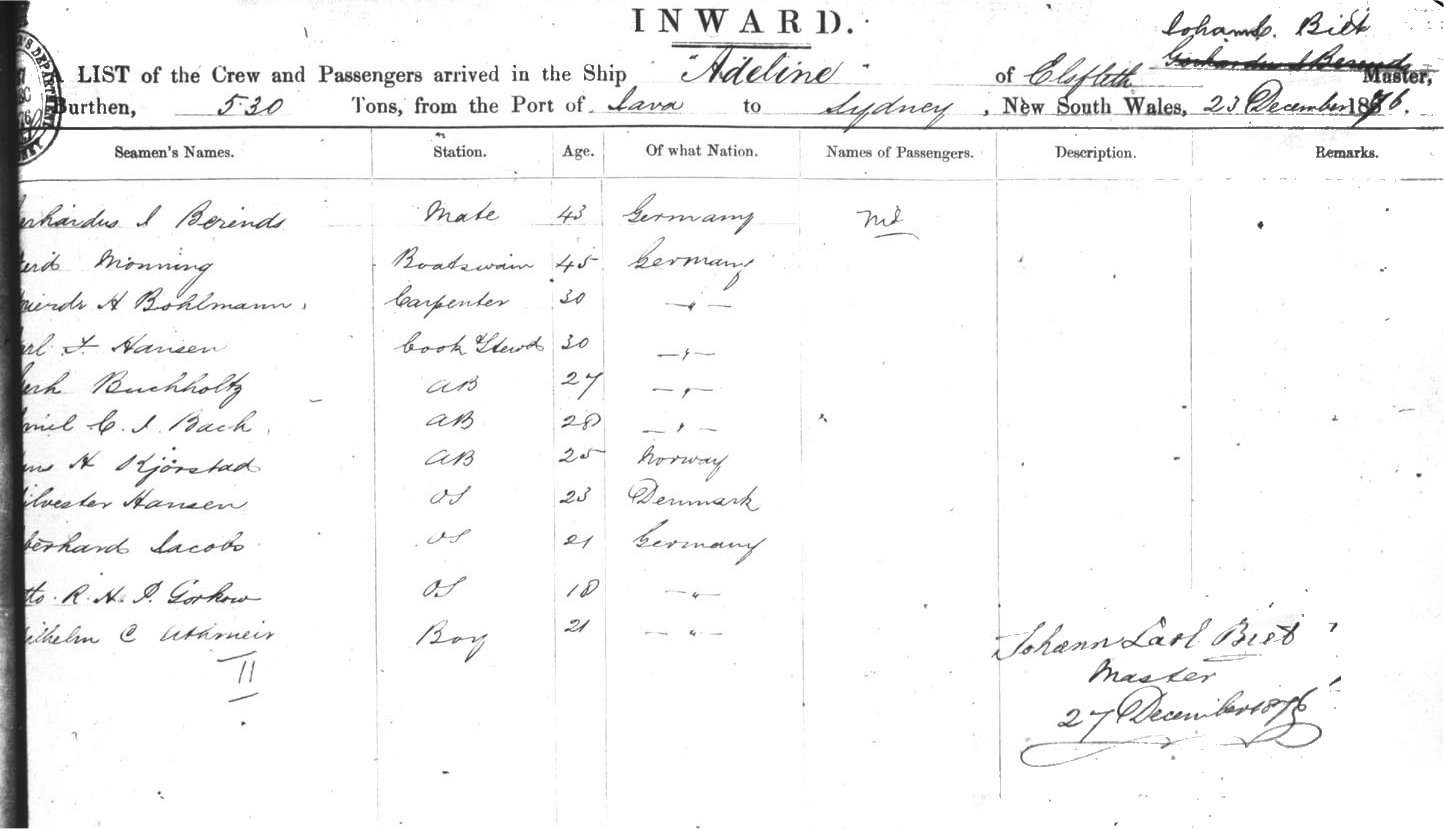 INWARD.
Johann C. Biet
A LIST of the Crew and Passengers arrived in the Ship "Adeline" of Elsfleth Gerhardus I Berends Master,
Burthen, 530 Tons, from the Port of Java to Sydney, New South Wales, 23 December 1876.
Seamen's Names. Station. Age. Of what Nation. Names of Passengers. Description. Remarks.
erhardus I Berends Mate 43 Germany Nil
Monning Boatswain 45 Germany
H Bohlmann Carpenter 30 — " —
arl F Hansen Cook & Stewd 30 — " —
erh Buchholtz AB 27 — " —
mil C. I. Bach AB 28 — " —
H Kjörstad AB 25 Norway
ilvester Hansen OS 23 Denmark
berhard Jacobs OS 21 Germany
tto R. H. P. Gorkow OS 18 — " —
ilhelm C Boy 21 — " —
11
Johann Carl Biet
Master
27 December 1876